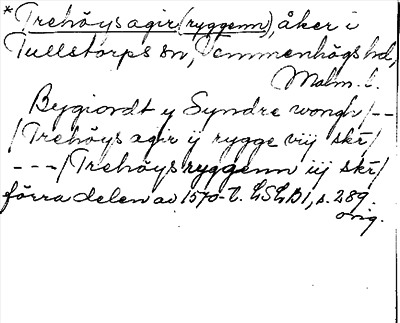 *Trehöys agir (ryggenn), åker i
Tullstorps sn, Vemmenhögs hd,
Malm. l.
Bygiordt y Syndre wongh /--
/Trehöys agir ij rygge vij skr̄/
---/Trehöys ryggenn iij skr̄/
förra delen av 1570-t. LSLB1, s. 289.
orig.